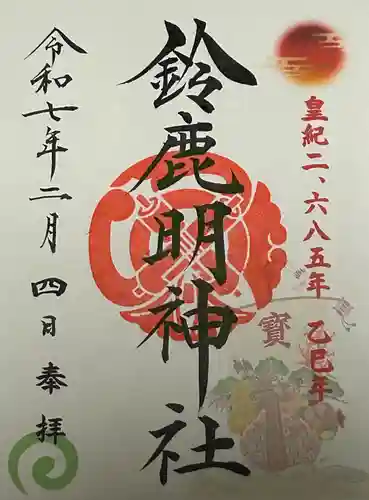 皇紀二、六八五年 乙巳年
寳
鈴鹿明神社
令和七年二月四日 奉拝